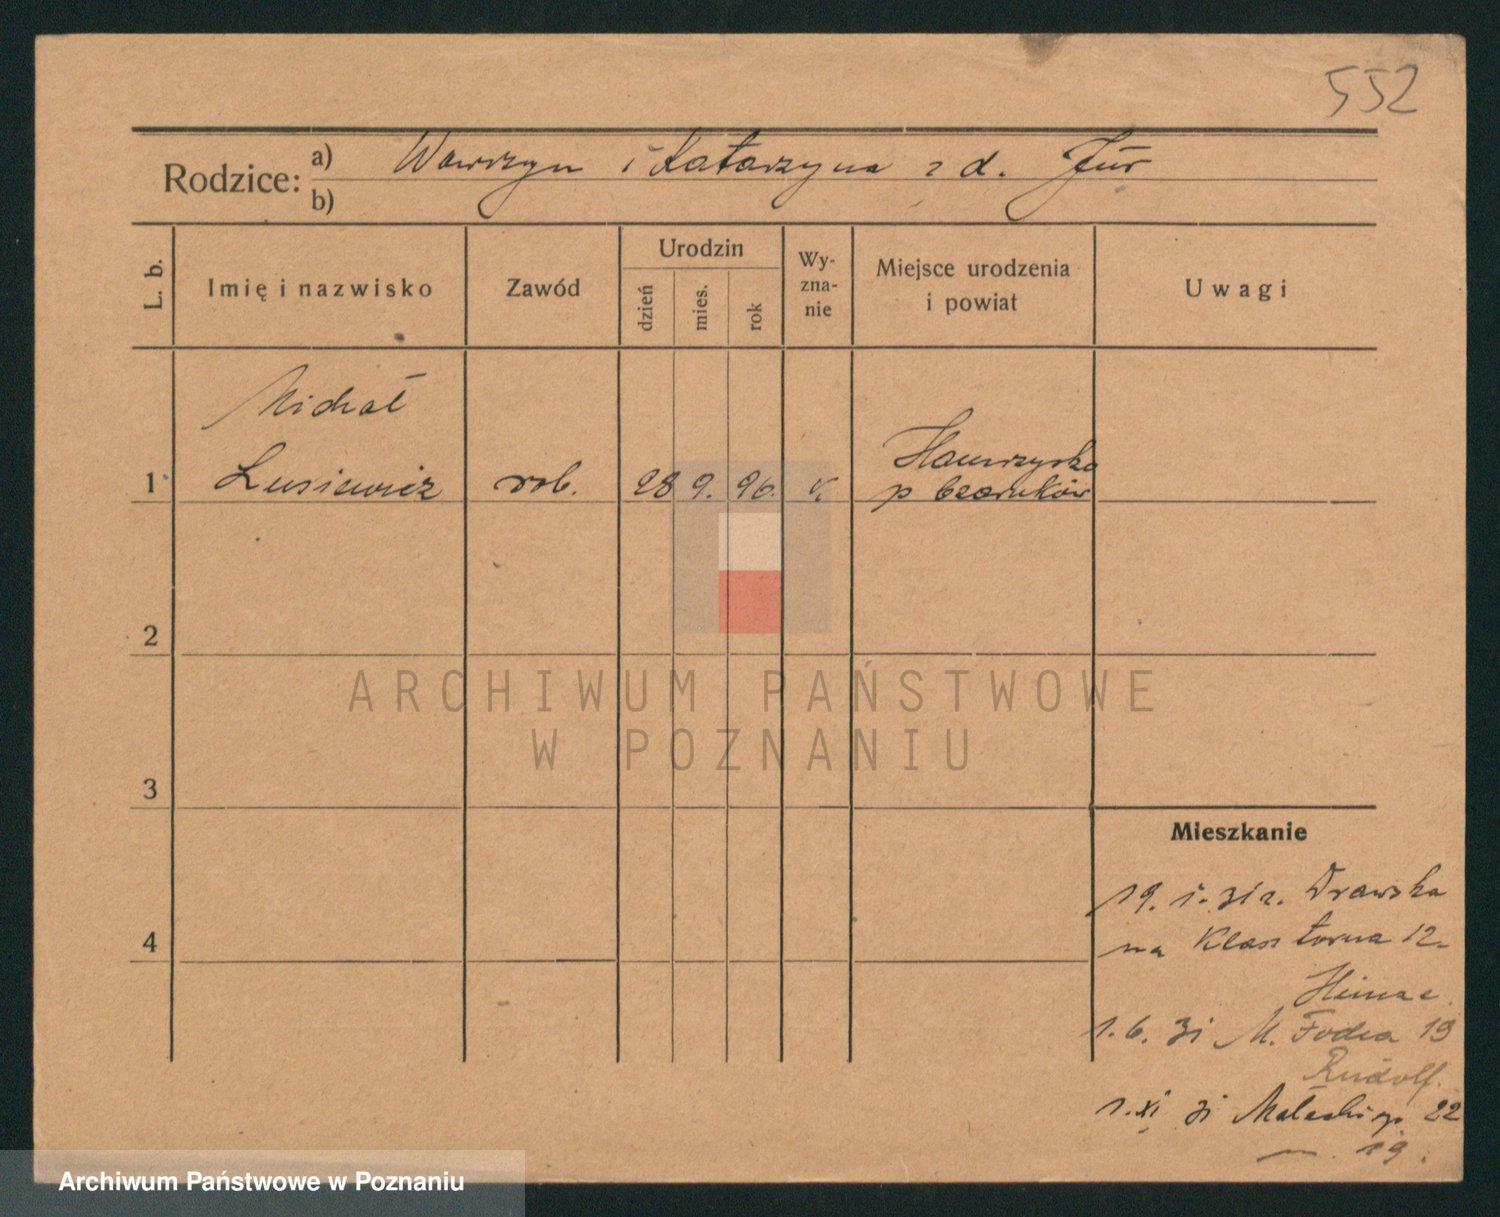 552
Rodzice: a) Wawrzyn i Katarzyna z d. Jur
b)
L. b. Imię i nazwisko Zawód Urodzin dzień mies. rok Wy-zna-nie Miejsce urodzenia i powiat Uwagi
Michał
Hamrzysko
1 Lusiewicz rob. 28 9. 96. k. p Czarnków
2
ARCHIWUM PAŃSTWOWE
W POZNANIU
3
Mieszkanie
19. 1. 31 r. Drawska
4
na Klasztorna 12
1. 6. 31 M. Focha 19
Rudolf.
1. XI 31 Małeckiego 22
19.
Archiwum Państwowe w Poznaniu